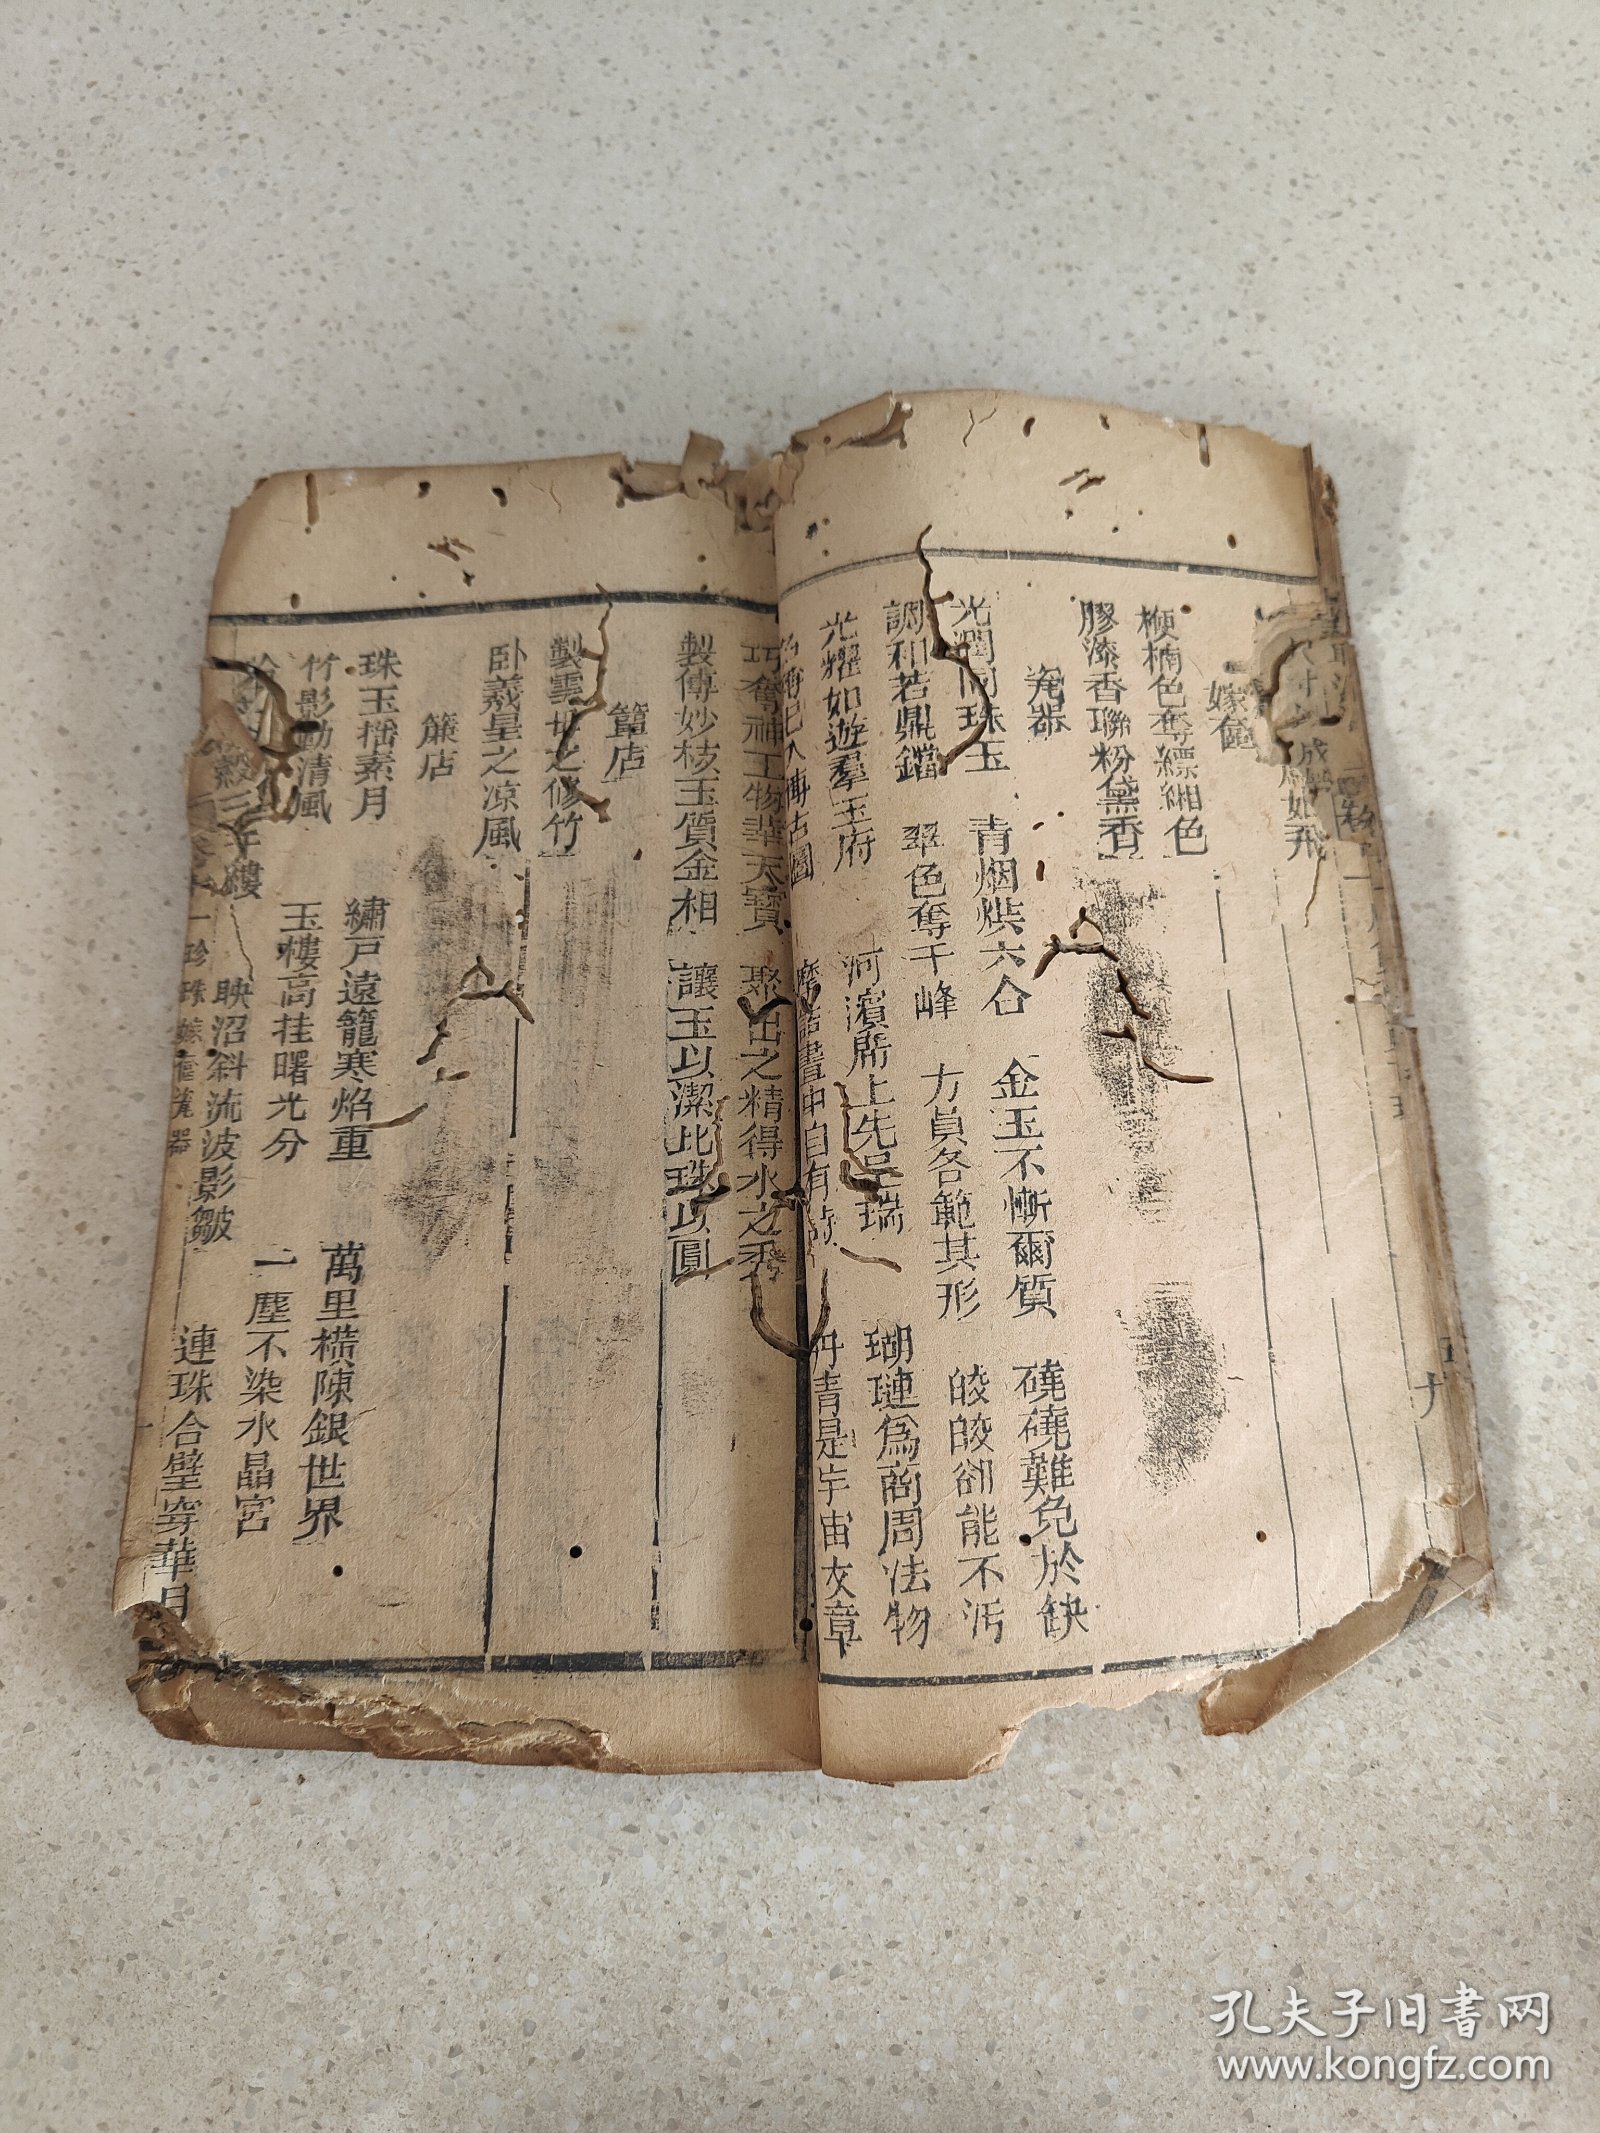 嫁奩
楩楠色奪縹緗色
膠漆香聯粉黛香
窰器
光潤同珠玉 青烟烘六合 金玉不慚爾質 磽磽難免於缺
調和若鼎鐺 翠色奪千峰 方員各範其形 皎皎卻能不汚
光耀如遊羣玉府 河濱席上先呈瑞 瑚璉為商周法物
丹青是宇宙文章
巧奪神工物華天寶 聚 之精得水之秀
製傳妙核玉質金相 讓玉以潔比珠以圓
簟店
製雲母之修竹
臥羲皇之凉風
簾店
珠玉搖素月 繡戶遠籠寒焰重 萬里橫陳銀世界
竹影動清風 玉樓高挂曙光分 一塵不染水晶宮
映沼斜流波影皺 連珠合璧穿華月
珍珠 嫁奩 窰器
孔夫子旧書网
www.kongfz.com